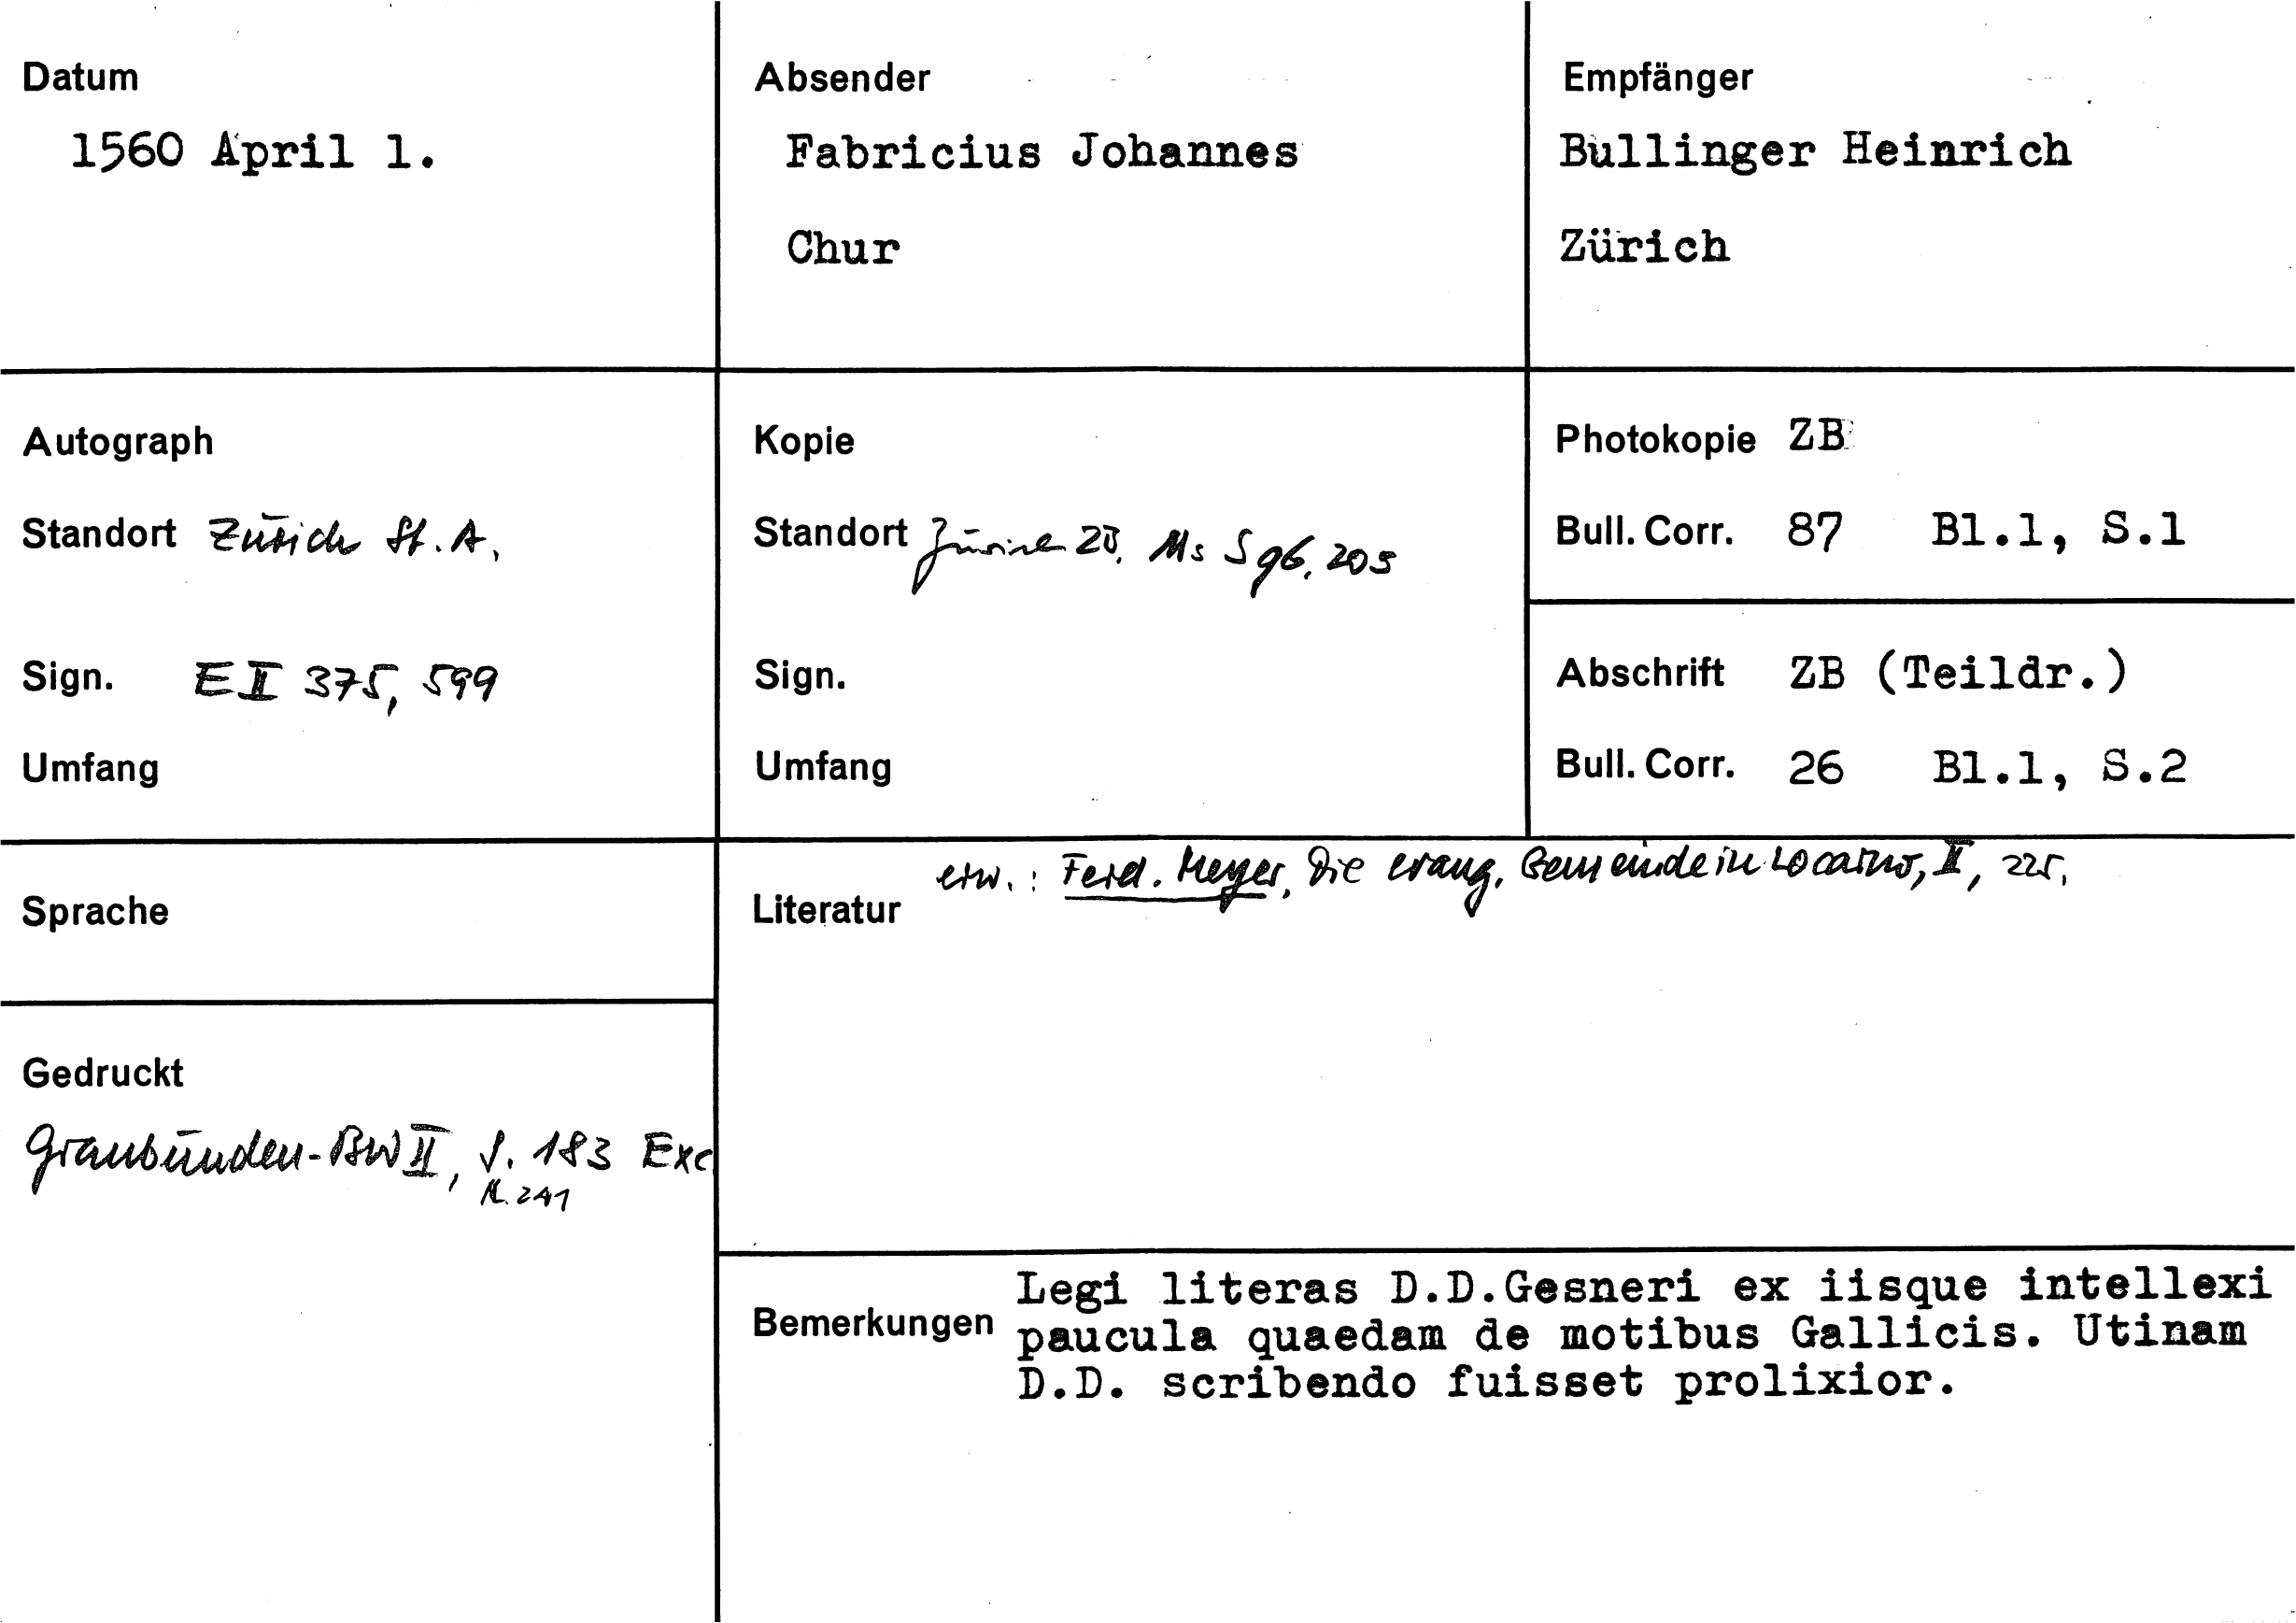 Datum
1560 April 1.
Absender
Fabricius Johannes
Chur
Empfänger
Bullinger Heinrich
Zürich
Autograph
Standort Zürich St.A.
Sign. E II 375, 599
Umfang
Kopie
Standort Zürich ZB, Ms S 96, 205
Sign.
Umfang
Photokopie ZB
Bull. Corr. 87 Bl.1, S.1
Abschrift ZB (Teildr.)
Bull. Corr. 26 Bl.1, S.2
Sprache
Gedruckt
Graubünden-BW II, S. 183 Exc
N. 241
Literatur
erw.: Ferd. Meyer, Die evang. Gemeinde in Locarno, II, 225.
Bemerkungen
Legi literas D.D.Gesneri ex iisque intellexi
paucula quaedam de motibus Gallicis. Utinam
D.D. scribendo fuisset prolixior.